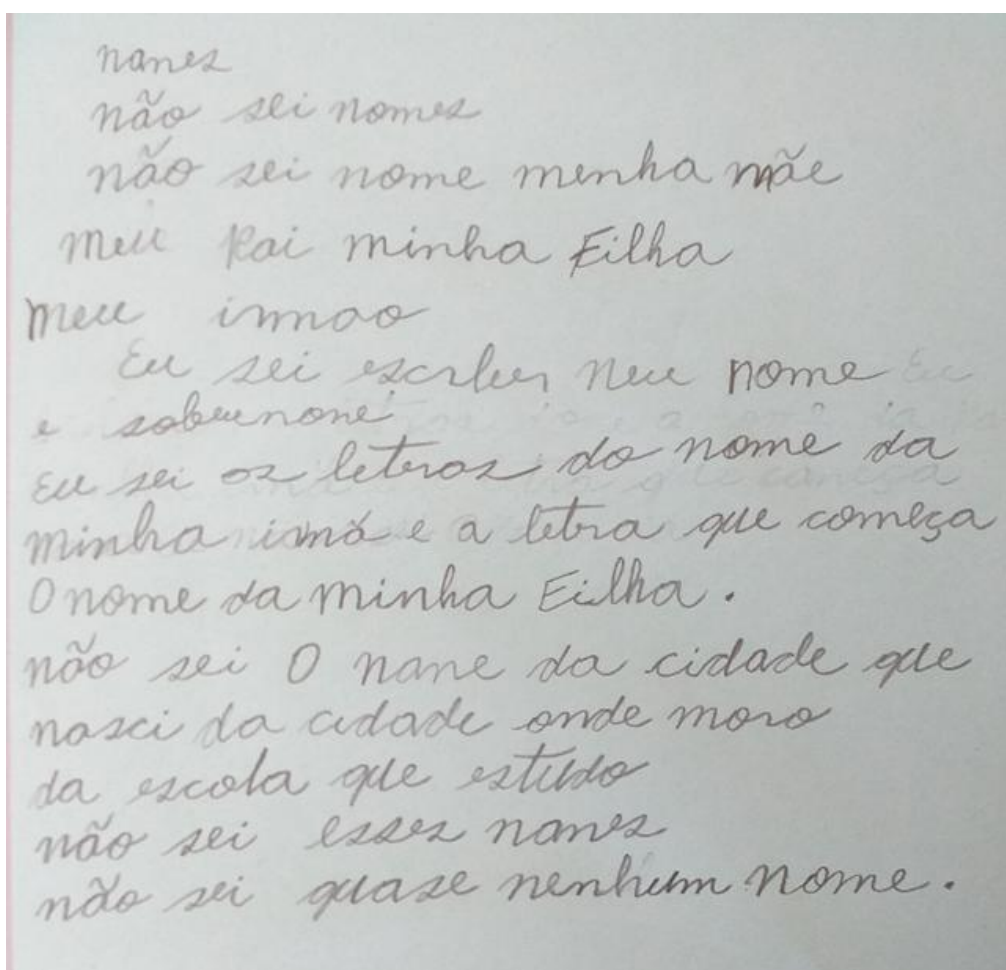 nanes
não sei nomes
não sei nome menha mãe
meu Pai minha Filha
meu irmao
Eu sei escrler neu nome
e sobrenone
Eu sei os letras do nome da
minha imã e a letra que começa
O nome da minha Filha.
não sei O nane da cidade que
nasci da cidade onde moro
da escola que estudo
não sei esses nanes
não sei quase nenhum nome.